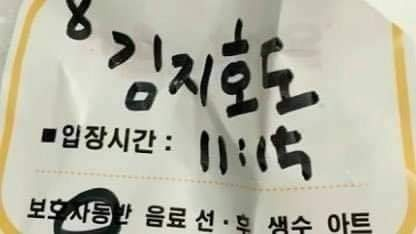 8
김지호도
■입장시간 : 11:15
보호자동반 음료 선·후 생수 아트